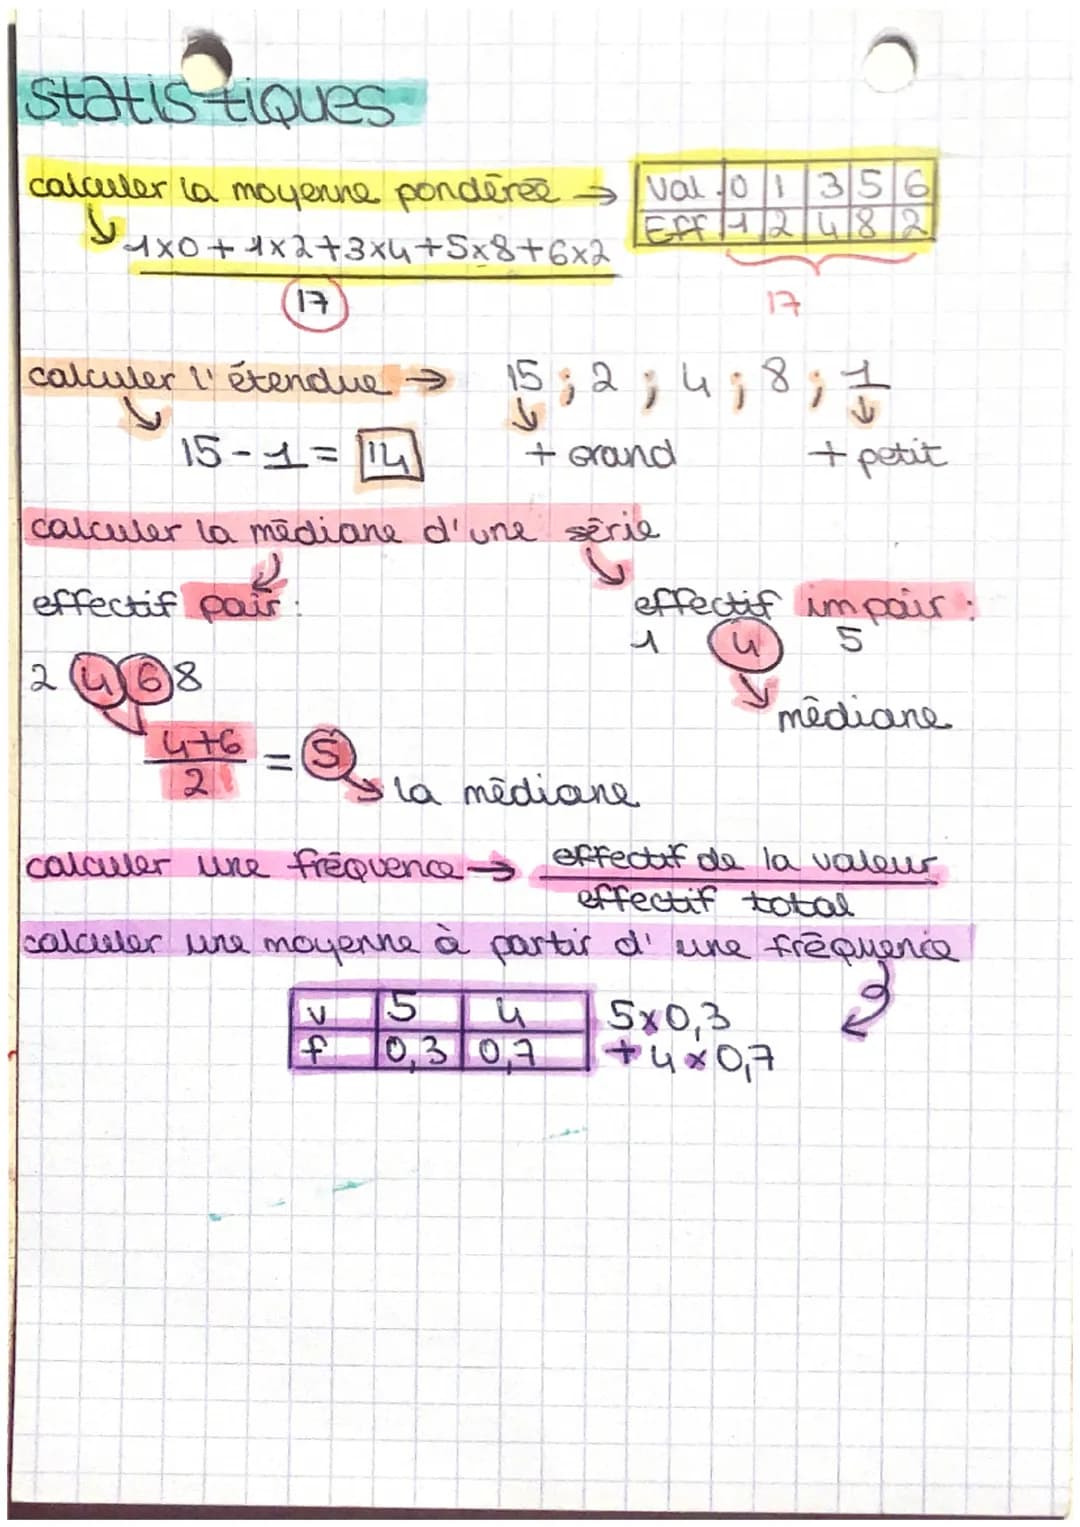 statistiques
calculer la moyenne pondérée → Val. 0 1 3 5 6
Eff 1 2 4 8 2
1x0 + 1x2+3x4+5x8+6x2
17
17
calculer l'étendue → 15 ; 2 ; 4 ; 8 ; 1
15-1= 14
+ grand + petit
calculer la médiane d'une série
effectif pair : effectif impair :
1 4 5
2 4 6 8
médiane
4+6
2
= 5
la médiane
calculer une fréquence → effectif de la valeur
effectif total
calculer une moyenne à partir d'une fréquence
v 5 4
f 0,3 0,7
5x0,3
+ 4x0,7